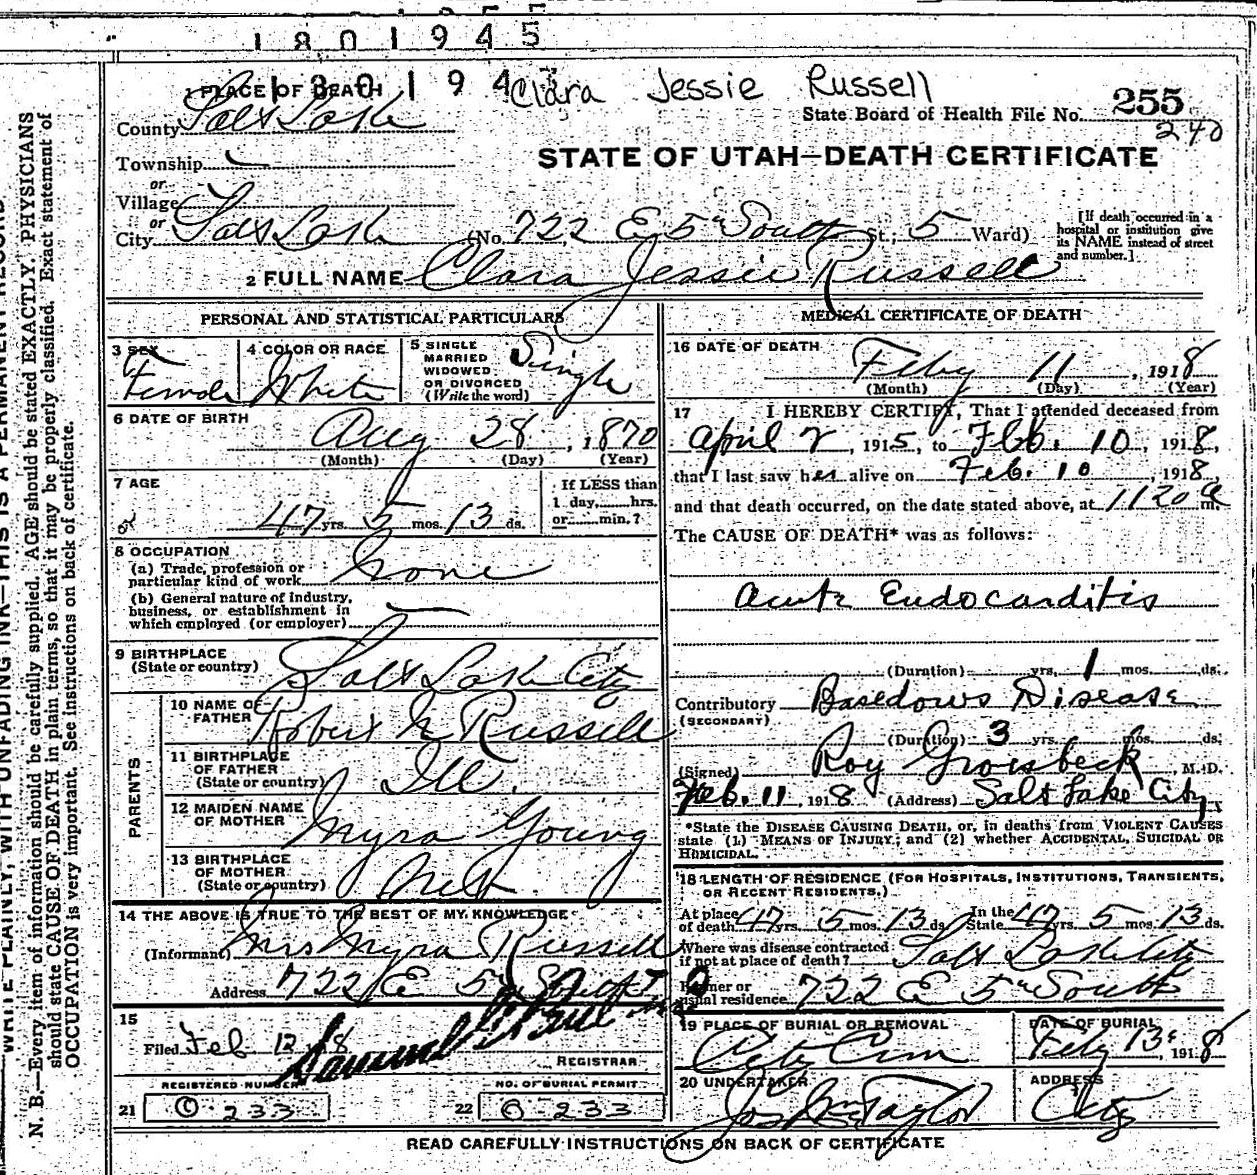 1801945
180194
Clara Jessie Russell
1 PLACE OF DEATH
State Board of Health File No. 255
240
County Salt Lake
Township
or
Village
or
City Salt Lake (No. 722 E 5" South St.; 5 Ward)
[If death occurred in a hospital or institution give its NAME instead of street and number.]
STATE OF UTAH—DEATH CERTIFICATE
2 FULL NAME Clara Jessie Russell
PERSONAL AND STATISTICAL PARTICULARS
3 SEX Female
4 COLOR OR RACE White
5 SINGLE MARRIED WIDOWED OR DIVORCED (Write the word) Single
6 DATE OF BIRTH Aug 28, 1870
(Month) (Day) (Year)
7 AGE 47 yrs. 5 mos. 13 ds.
If LESS than 1 day, hrs. or min.?
8 OCCUPATION
(a) Trade, profession or particular kind of work None
(b) General nature of industry, business, or establishment in which employed (or employer)
9 BIRTHPLACE (State or country) Salt Lake City
PARENTS
10 NAME OF FATHER Robert N Russell
11 BIRTHPLACE OF FATHER (State or country) Ill.
12 MAIDEN NAME OF MOTHER Myra Young
13 BIRTHPLACE OF MOTHER (State or country)
14 THE ABOVE IS TRUE TO THE BEST OF MY KNOWLEDGE
(Informant) Mrs Myra Russell
Address 722 E 5" South
15
Filed Feb 12 18
REGISTRAR
REGISTERED NUMBER
NO. OF BURIAL PERMIT
21 C 233
22 233
MEDICAL CERTIFICATE OF DEATH
16 DATE OF DEATH Feby 11, 1918
(Month) (Day) (Year)
17 I HEREBY CERTIFY, That I attended deceased from
April 2, 1915, to Feb. 10, 1918,
that I last saw her alive on Feb. 10, 1918,
and that death occurred, on the date stated above, at 1120 a m.
The CAUSE OF DEATH* was as follows:
Acute Endocarditis
(Duration) yrs. 1 mos. ds.
Contributory (SECONDARY) Basedows Disease
(Duration) 3 yrs. mos. ds.
(Signed) Roy Groesbeck M.D.
Feb. 11, 1918 (Address) Salt Lake City
*State the DISEASE CAUSING DEATH, or, in deaths from VIOLENT CAUSES
state (1) MEANS OF INJURY; and (2) whether ACCIDENTAL, SUICIDAL OR
HOMICIDAL.
18 LENGTH OF RESIDENCE (FOR HOSPITALS, INSTITUTIONS, TRANSIENTS,
OR RECENT RESIDENTS.)
At place of death 47 yrs. 5 mos. 13 ds. In the State 47 yrs. 5 mos. 13 ds.
Where was disease contracted if not at place of death? Salt Lake City
Former or usual residence 722 E 5" South
19 PLACE OF BURIAL OR REMOVAL City Cem
DATE OF BURIAL Feby 13", 1918
20 UNDERTAKER Jos Wm Taylor
ADDRESS City
READ CAREFULLY INSTRUCTIONS ON BACK OF CERTIFICATE
WRITE PLAINLY, WITH UNFADING INK—THIS IS A PERMANENT RECORD
N. B.—Every item of information should be carefully supplied. AGE should be stated EXACTLY. PHYSICIANS
should state CAUSE OF DEATH in plain terms, so that it may be properly classified. Exact statement of
OCCUPATION is very important. See instructions on back of certificate.